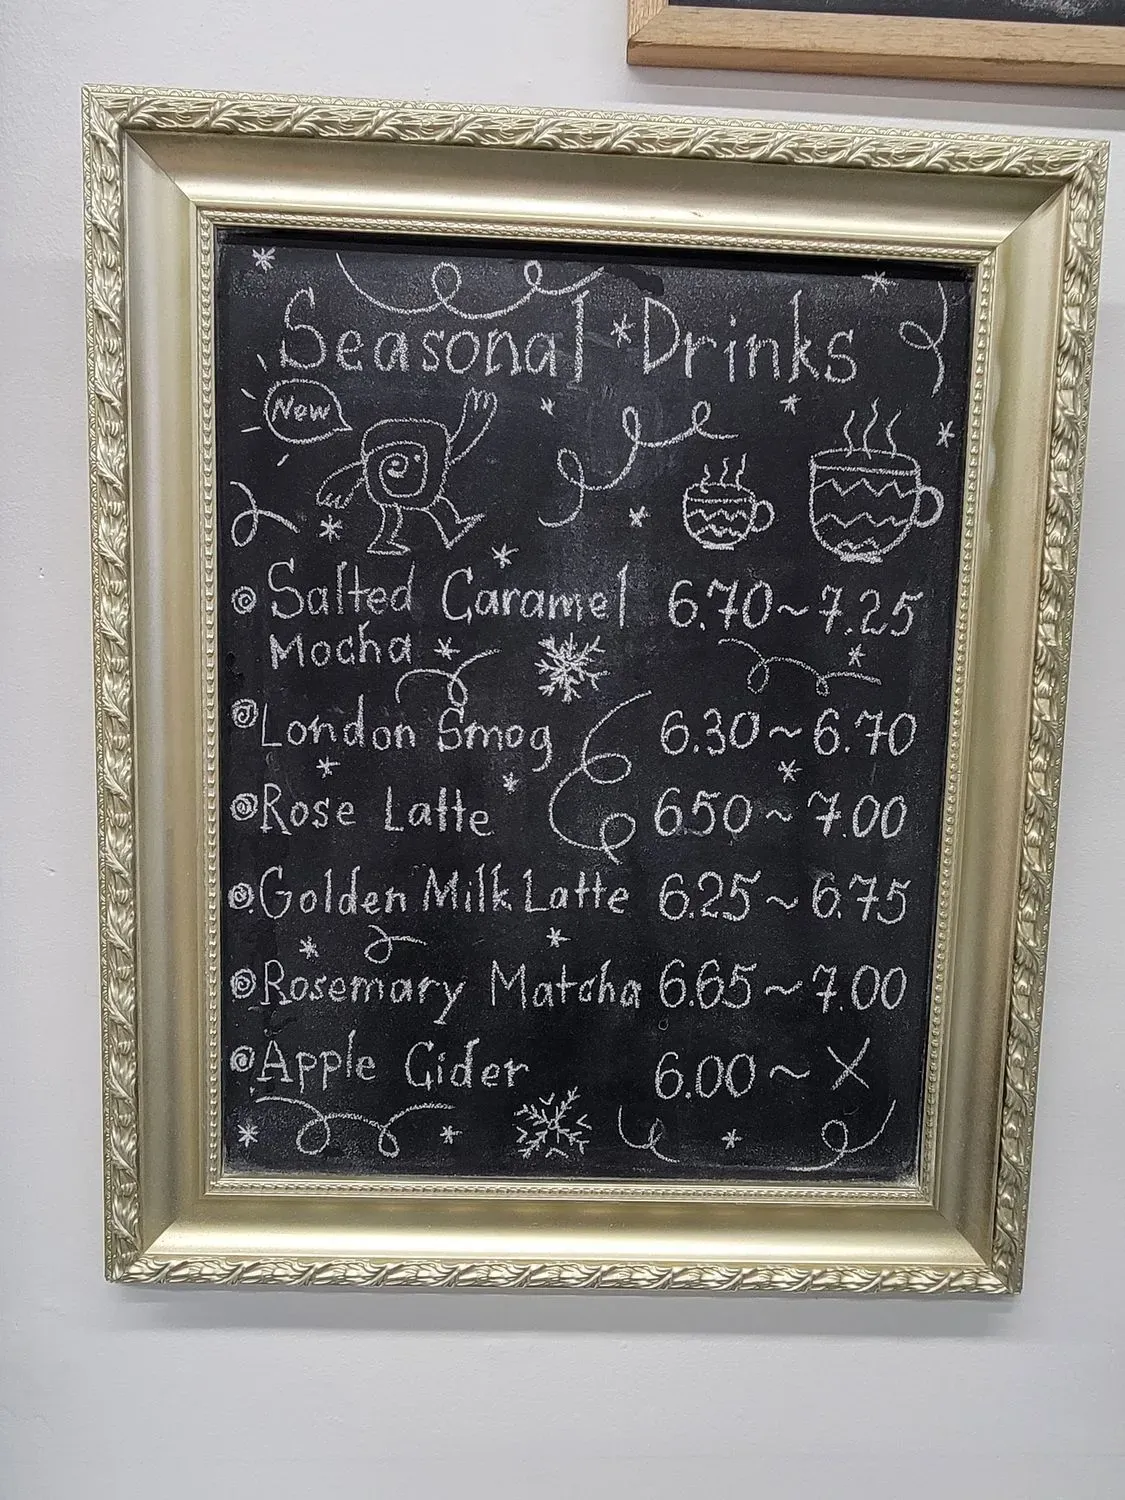 Seasonal Drinks
New
Salted Caramel 6.70~7.25
Mocha
London Smog 6.30~6.70
Rose Latte 650~7.00
Golden Milk Latte 6.25~6.75
Rosemary Matcha 6.65~7.00
Apple Cider 6.00~X